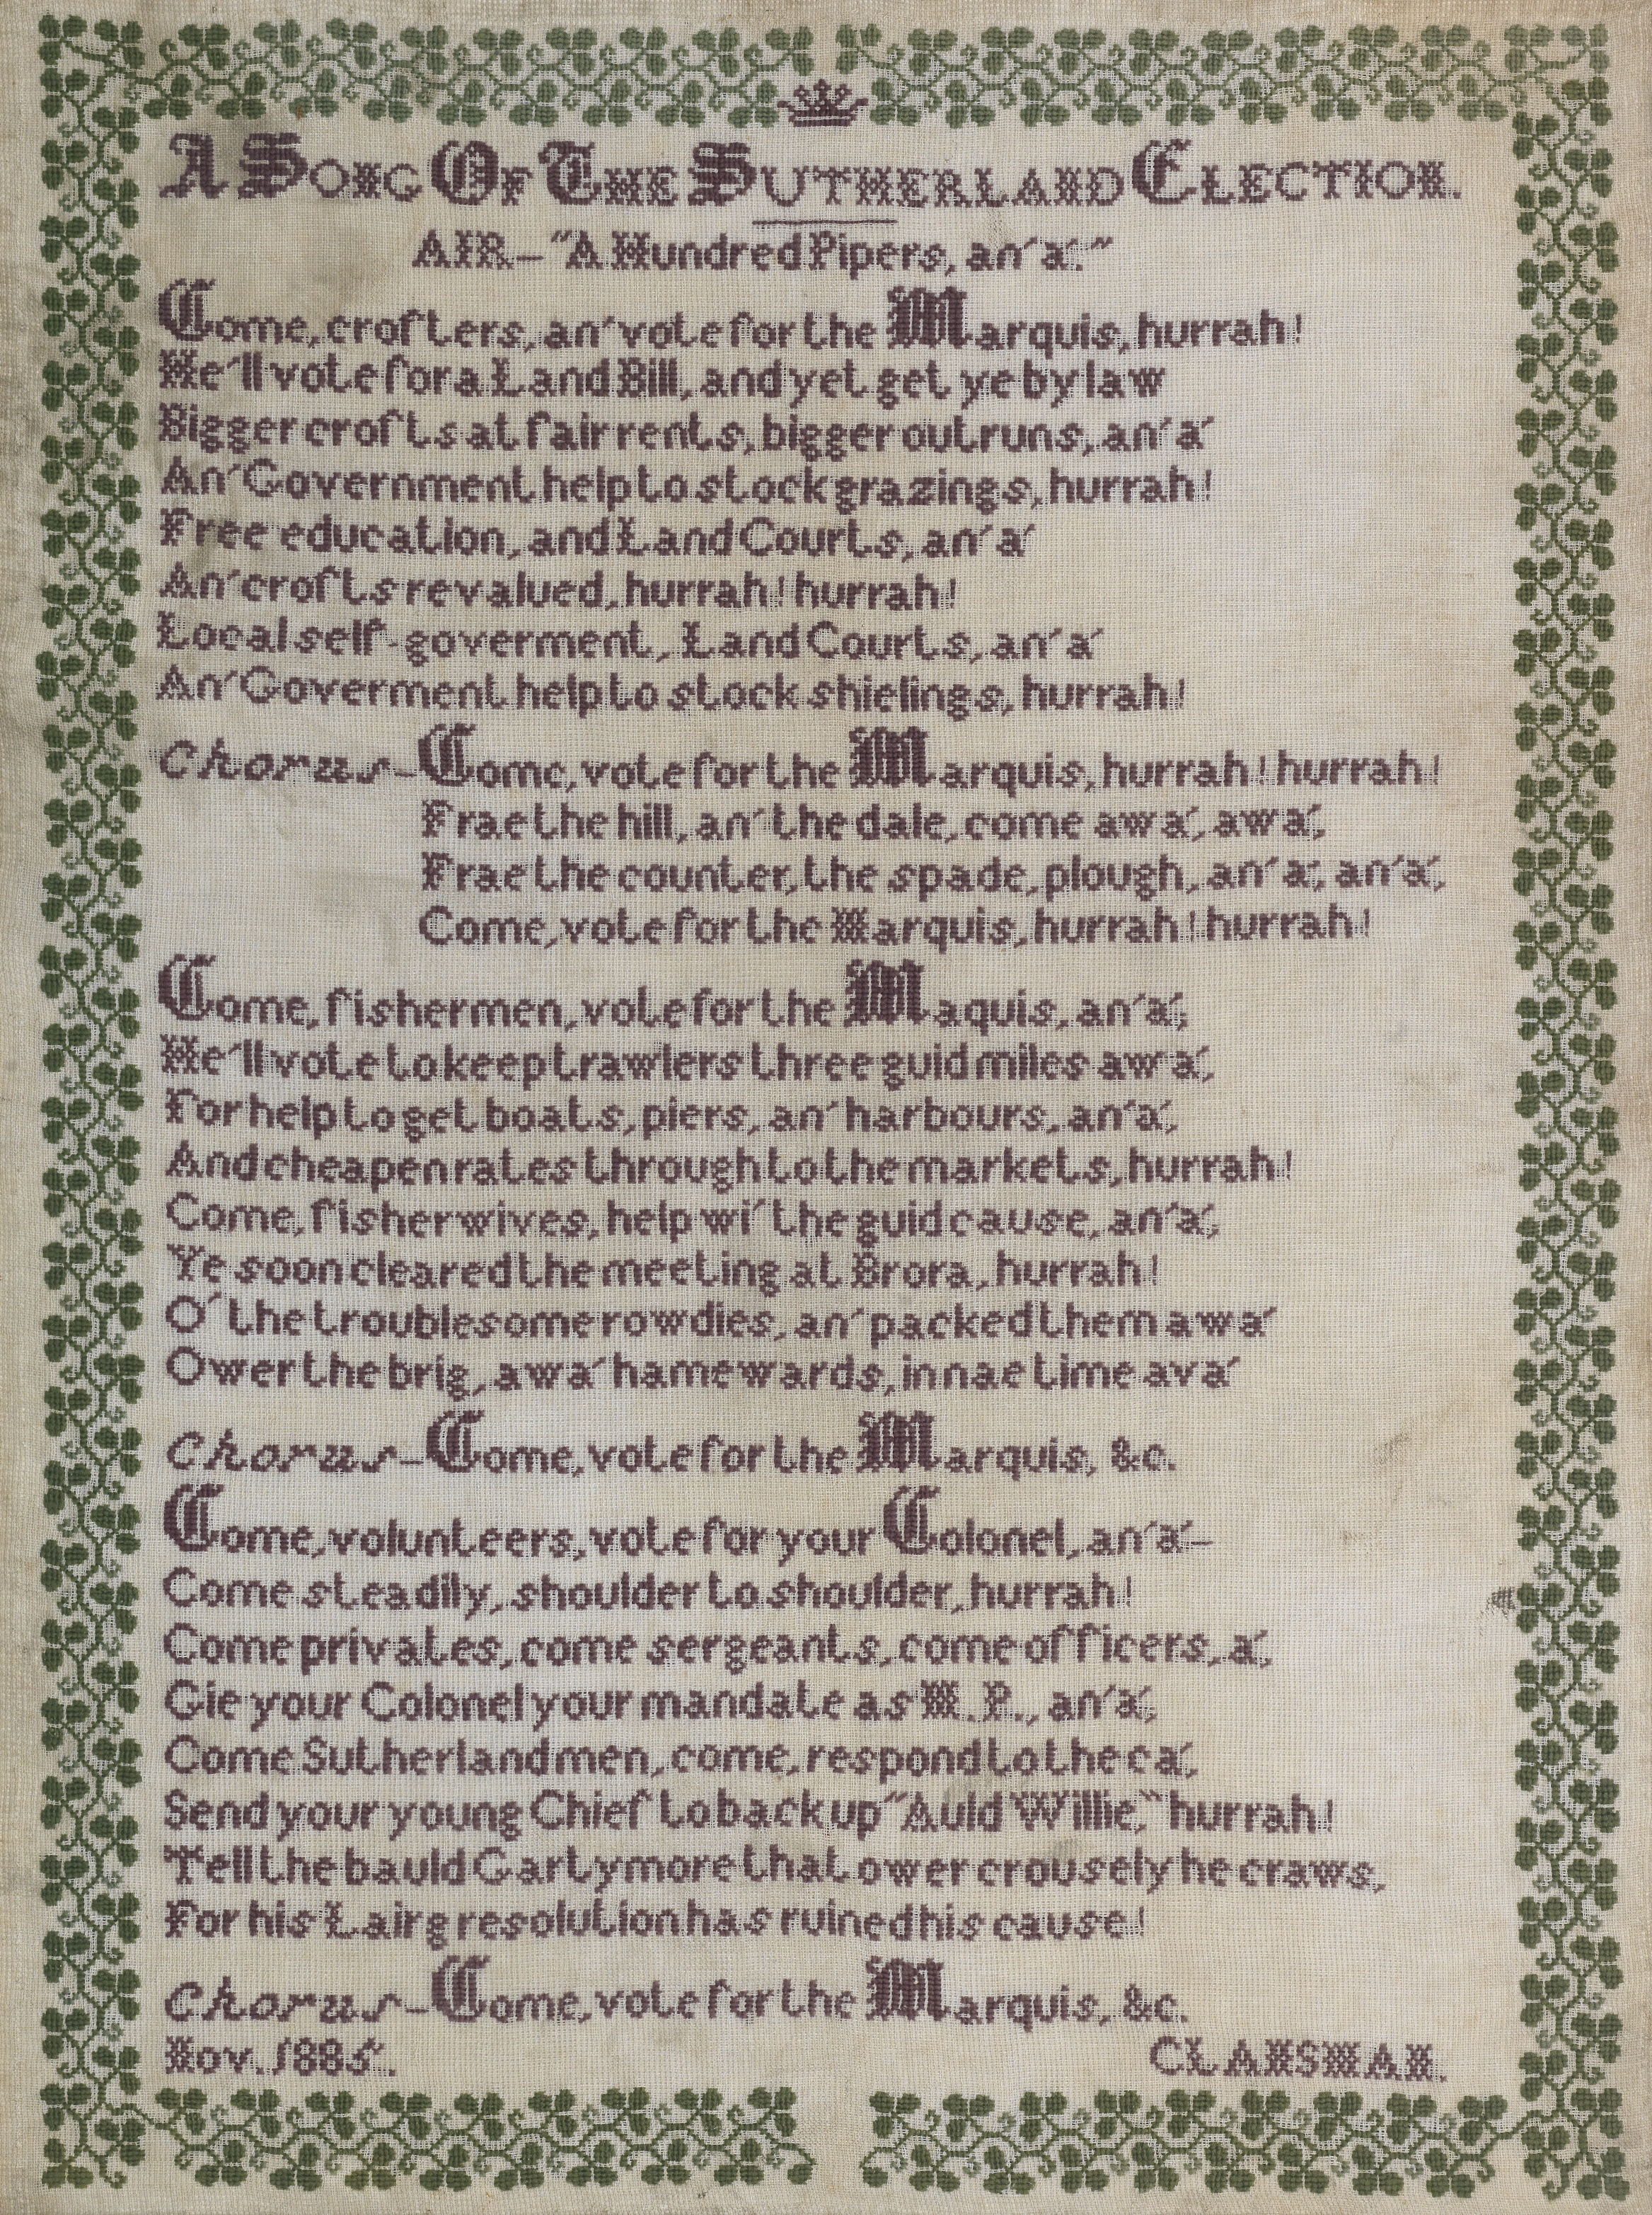 A Song Of The Sutherland Election.
AIR—"A Hundred Pipers, an' a'."
Come, crofters, an' vote for the Marquis, hurrah!
He'll vote for a Land Bill, and yet get ye by law
Bigger crofts at fair rents, bigger outruns, an' a'
An' Government help to stock grazings, hurrah!
Free education, and Land Courts, an' a'
An' crofts revalued, hurrah! hurrah!
Local self-goverment, Land Courts, an' a'
An' Goverment help to stock shielings, hurrah!
Chorus—Come, vote for the Marquis, hurrah! hurrah!
Frae the hill, an' the dale, come awa', awa',
Frae the counter, the spade, plough, an' a', an' a',
Come, vote for the Marquis, hurrah! hurrah!
Come, fishermen, vote for the Maquis, an' a';
He'll vote to keep trawlers three guid miles awa',
For help to get boats, piers, an' harbours, an' a',
And cheapen rates through to the markets, hurrah!
Come, fisherwives, help wi' the guid cause, an' a',
Ye soon cleared the meeting at Brora, hurrah!
O' the troublesome rowdies, an' packed them awa'
Ower the brig, awa' hamewards, in nae time ava'
Chorus—Come, vote for the Marquis, &c.
Come, volunteers, vote for your Colonel, an' a'—
Come steadily, shoulder to shoulder, hurrah!
Come privates, come sergeants, come officers, a',
Gie your Colonel your mandate as M.P., an' a',
Come Sutherland men, come, respond to the ca',
Send your young Chief to back up "Auld Willie," hurrah!
Tell the bauld Gartymore that ower crousely he craws,
For his Lairg resolution has ruined his cause!
Chorus—Come, vote for the Marquis, &c.
Nov. 1885. CLANSMAN.